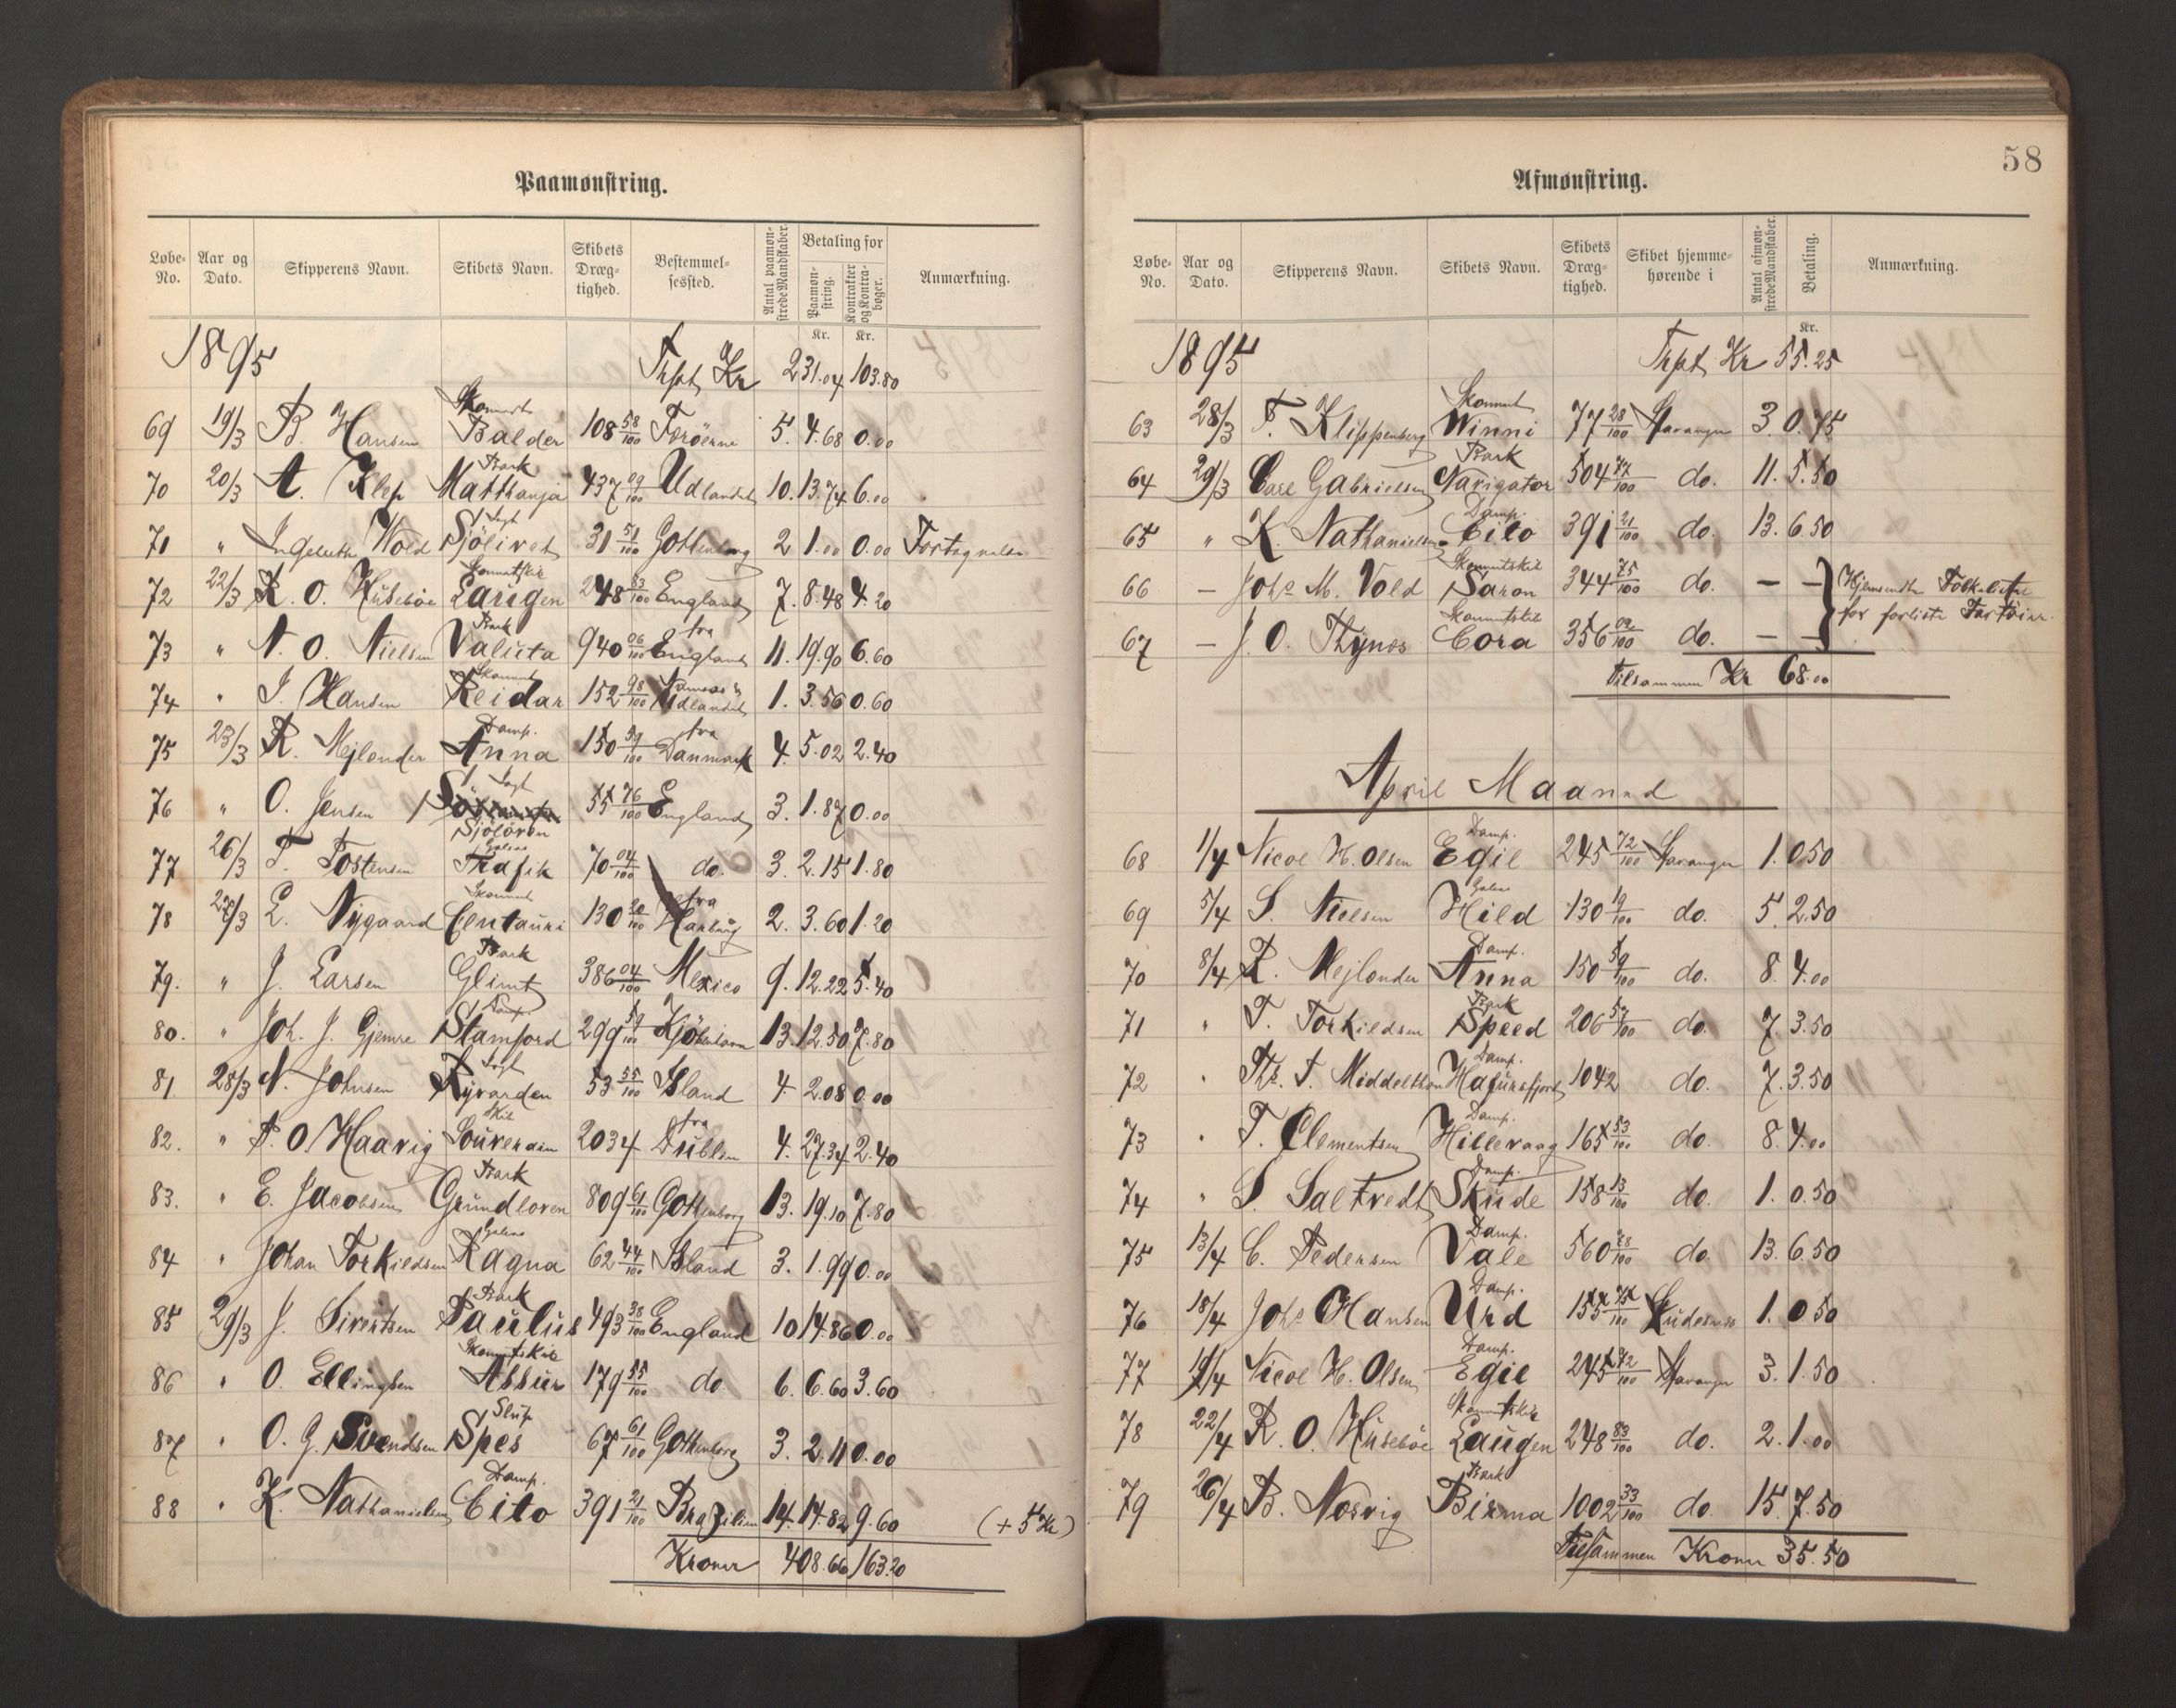 Paamønstring.
Løbe-No. Aar og Dato. Skipperens Navn. Skibets Navn. Skibets Dræg-tighed. Bestemmel-sessted. Antal paamøn-strede Mandskaber. Betaling for Paamøn-string. Kontrakter og Kontra-bøger. Anmærkning.
Kr. Kr.
1895 Trpt Kr 231.04 103.80
69 19/3 B. Hansen Skonnert Balder 108 58/100 Færöerne 5. 4.68 0.00
70 20/3 A. Klep Bark Matthanja 437 09/100 Udlandet 10. 13.74 6.00
71 " Ingebreth Wold Jagt Sjölivet 31 51/100 Gothenborg 2 1.00 0.00
72 22/3 R. O. Huseböe Skonnertskib Laugen 248 83/100 England 7. 8.48 4.20
73 " N. O. Nielsen Bark Valuta 940 06/100 fra England 11. 19.90 6.60
74 " I. Hansen Skonnert Reidar 152 98/100 Udlandet 1. 3.56 0.60
75 23/3 R. Mejlænder Damp. Anna 150 59/100 fra Danmark 4. 5.02 2.40
76 " O. Jensen Jagt Sjöloven 55 76/100 England 3. 1.87 0.00
77 26/3 T. Tostensen Galeas Trafik 70 04/100 do. 3. 2.15 1.80
78 27/3 L. Nygaard Skonnert Centauri 130 20/100 fra Harburg 2. 3.60 1.20
79. " J. Larsen Bark Glimt 386 04/100 Mexico 9. 12.22 5.40
80. " Joh. J. Gjemre Damp. Stamford 299 59/100 Kjöbenhavn 13. 12.50 7.80
81 28/3 N. Johnsen Jagt Ryvarden 53 55/100 Island 4. 2.08 0.00
82. " P. O. Haavig Skib Souverain 2034 fra Dublin 4. 27.34 2.40
83. " E. Jacobsen Bark Grundloven 809 61/100 Gothenborg 13. 19.10 7.80
84 " Johan Torkildsen Galeas Ragna 62 44/100 Island 3. 1.99 0.00
85 29/3 J. Sivertsen Bark Paulus 493 38/100 England 10 14.86 0.00
86 " O. Ellingsen Skonnertskib Assur 179 55/100 do 6. 6.60 3.60
87 " O. G. Svendsen Slup Spes 67 61/100 Gothenborg 3. 2.11 0.00
88 " K. Nathanielsen Damp. Cito 391 21/100 Brazilien 14. 14.82 9.60 (+ 5 Kr)
Kroner 408.66 163.20
58
Afmønstring.
Løbe-No. Aar og Dato. Skipperens Navn. Skibets Navn. Skibets Dræg-tighed. Skibet hjemme-hørende i Antal afmøn-strede Mandskaber. Betaling. Anmærkning.
Kr.
1895 Trpt Kr 55.25
63 28/3 T. Klippenberg Skonnert Winni 77 28/100 Stavanger 3. 0.75
64 29/3 Carl Gabrielsen Bark Navigator 504 77/100 do. 11. 5.50
65 " K. Nathanielsen Damp. Cito 391 21/100 do. 13. 6.50
66 – Johs M. Vold Skonnertskib Saron 344 75/100 do. – – Hjemsendte Folkelister
67 – J. O. Thynos Skonnertskib Cora 356 02/100 do. – – for forliste Fartöier.
Tilsammen Kr 68.00
April Maaned
68 1/4 Nicol H. Olsen Damp. Egil 245 72/100 Stavanger 1. 0.50
69 5/4 S. Nielsen Galeas Hild 130 19/100 do. 5. 2.50
70 8/4 R. Mejlænder Damp. Anna 150 59/100 do. 8. 4.00
71 " T. Torkildsen Bark Speed 206 57/100 do. 7. 3.50
72 " Ths. T. Middelthon Damp. Hafursfjord 1042 do. 7. 3.50
73 " T. Clementsen Damp. Hillevaag 165 53/100 do. 8. 4.00
74 " S. Saltvedt Damp. Skude 158 13/100 do. 1. 0.50
75 13/4 C. Pedersen Damp. Vale 560 28/100 do. 13. 6.50
76 18/4 Johs Hansen Damp. Urd 155 75/100 Skudesnes 1. 0.50
77 19/4 Nicol H. Olsen Damp. Egil 245 72/100 Stavanger 3. 1.50
78 22/4 R. O. Huseböe Skonnertskib Laugen 248 83/100 do. 2. 1.00
79 26/4 B. Næsvig Bark Birma 1002 33/100 do. 15. 7.50
Tilsammen Kroner 35.50